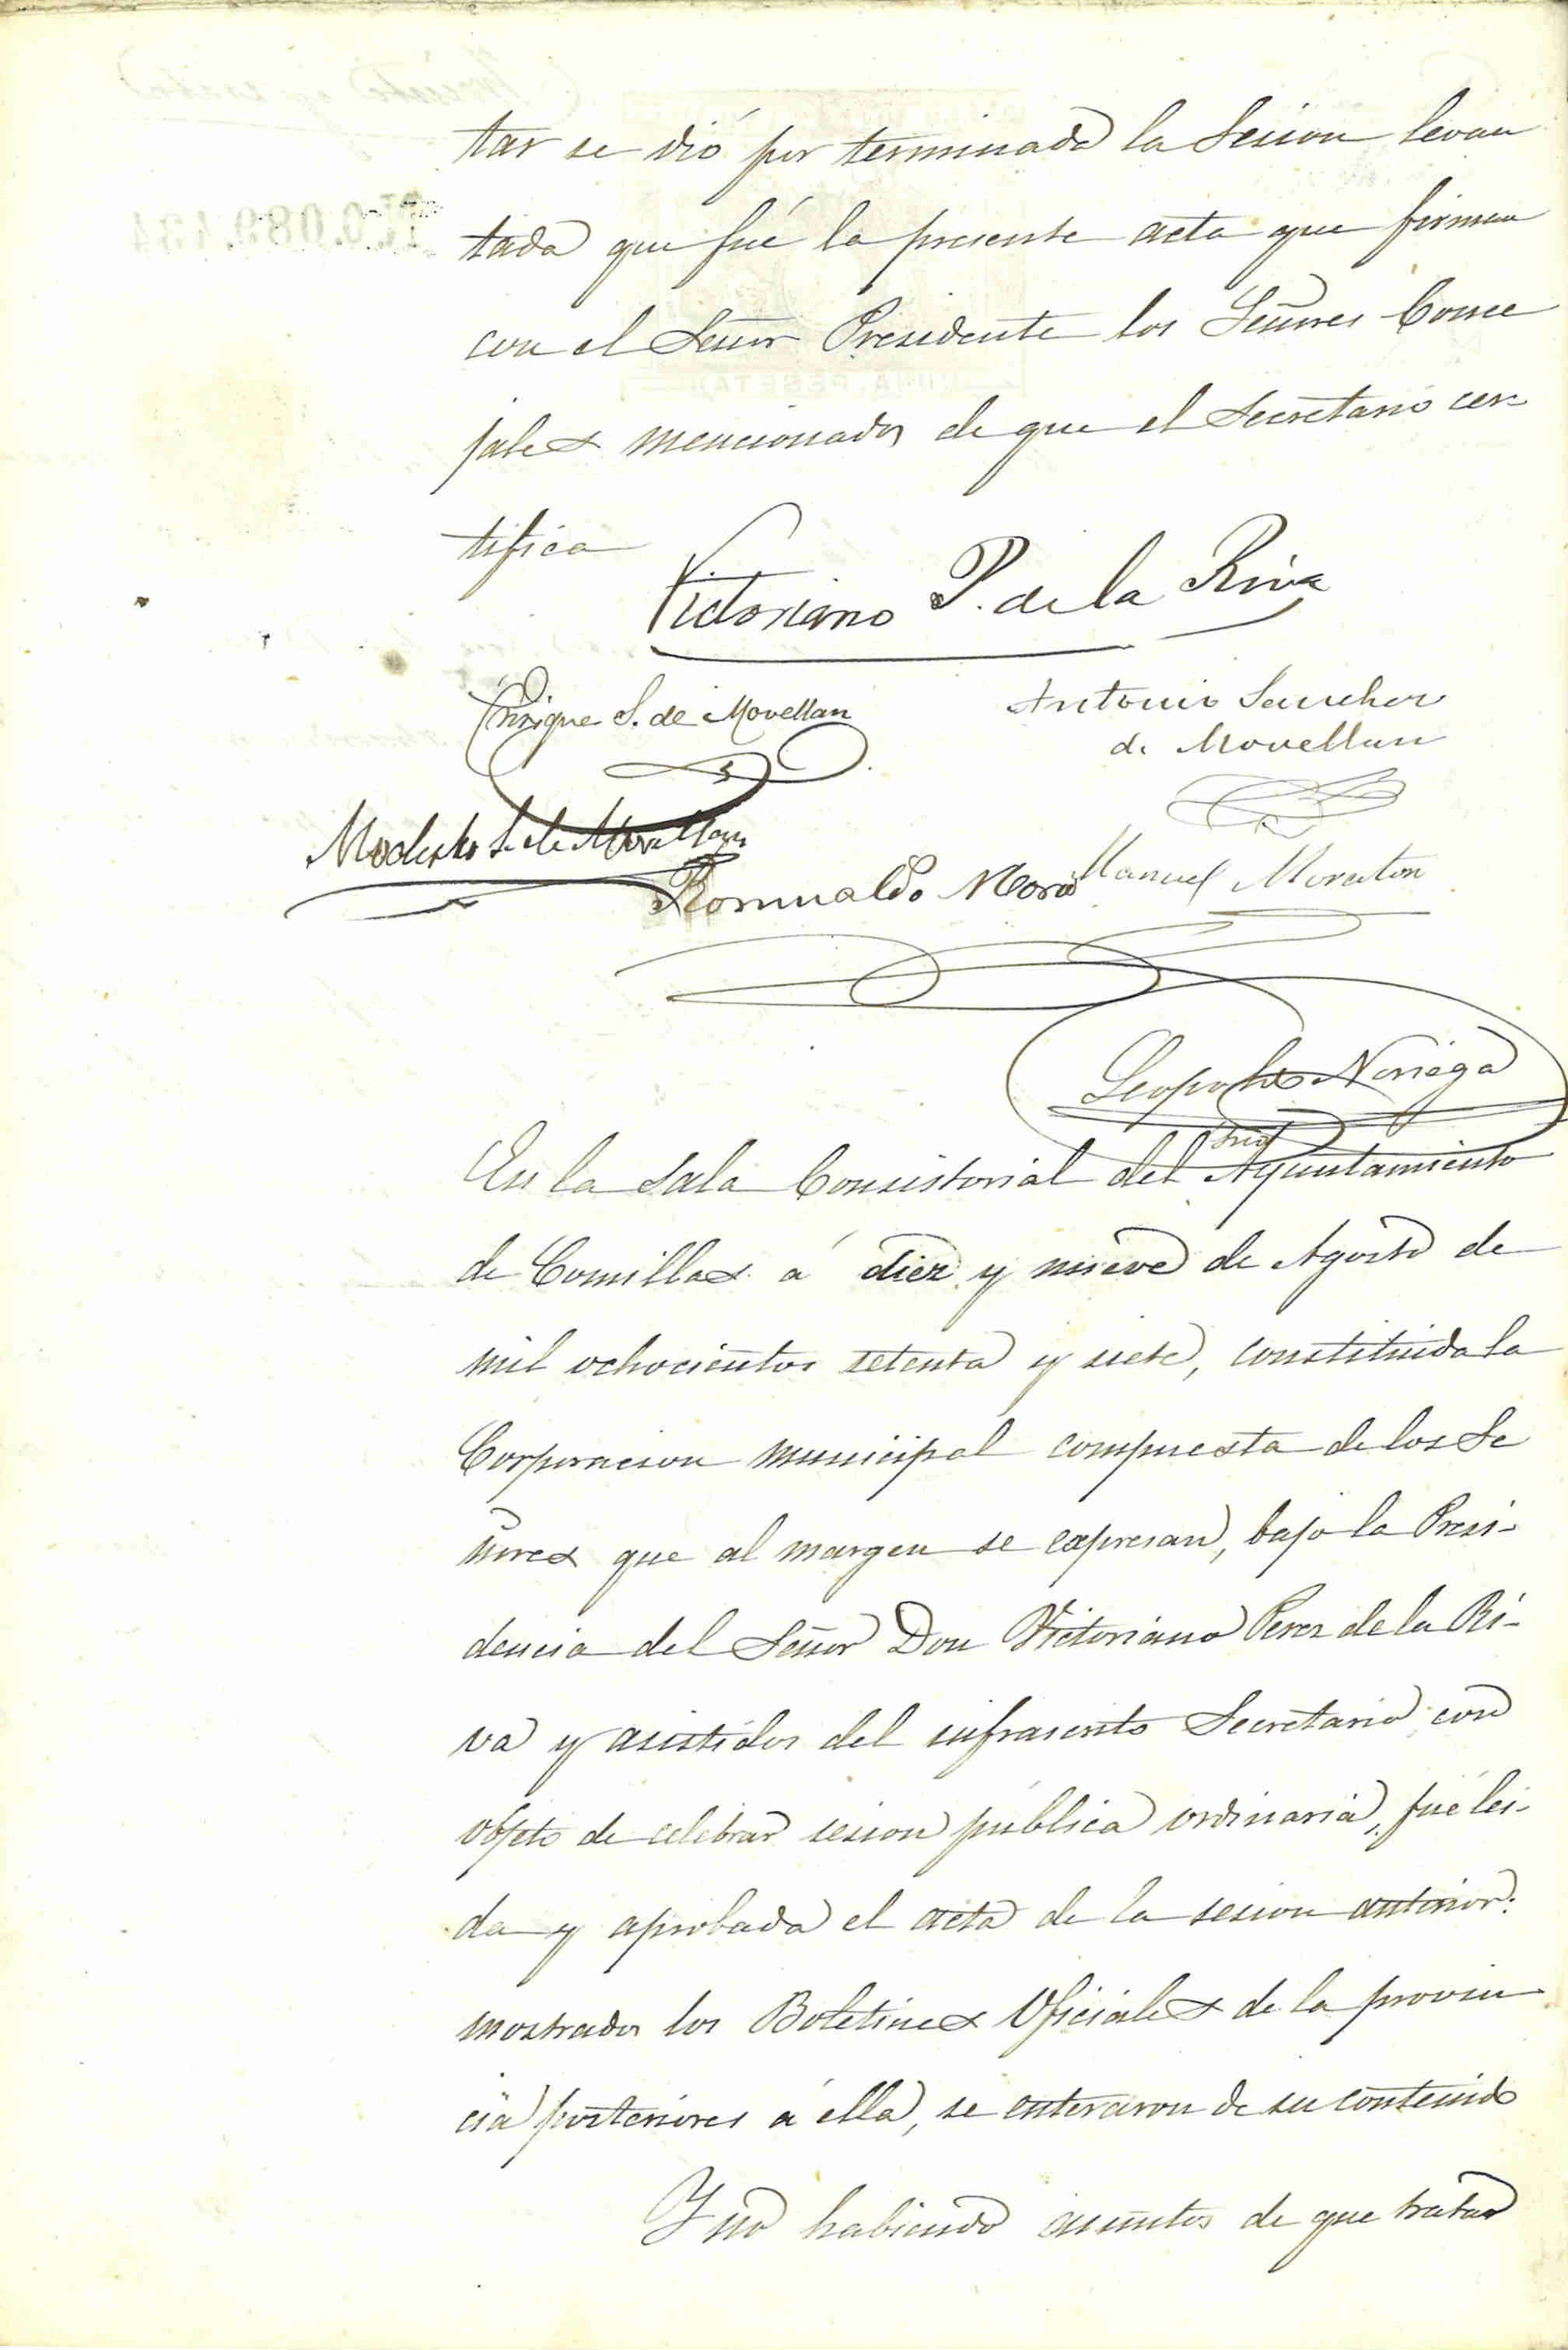 tar se dió por terminada la Sesion levan
tada que fué la presente acta que firman
con el Señor Presidente los Señores Conce
jales mencionados de que el Secretario cer-
tifica
Victoriano P. de la Riva
Enrique S. de Movellan
Antonio Sanchez
de Movellan
Modesto S. de Movellan
Romualdo Mora
Manuel Moraton
Leopoldo Noriega
Srio
En la Sala Consistorial del Ayuntamiento
de Comillas á diez y nueve de Agosto de
mil ochocientos setenta y siete, constituida la
Corporacion municipal compuesta de los Se
ñores que al margen se expresan, bajo la Presi-
dencia del Señor Don Victoriano Perez de la Ri-
va y asistidos del infrascrito Secretario con
objeto de celebrar sesion pública ordinaria, fué lei-
da y aprobada el acta de la sesion anterior:
mostrados los Boletines Oficiales de la provin
cia posteriores á ella, se enteraron de su contenido
Y no habiendo asuntos de que tratar